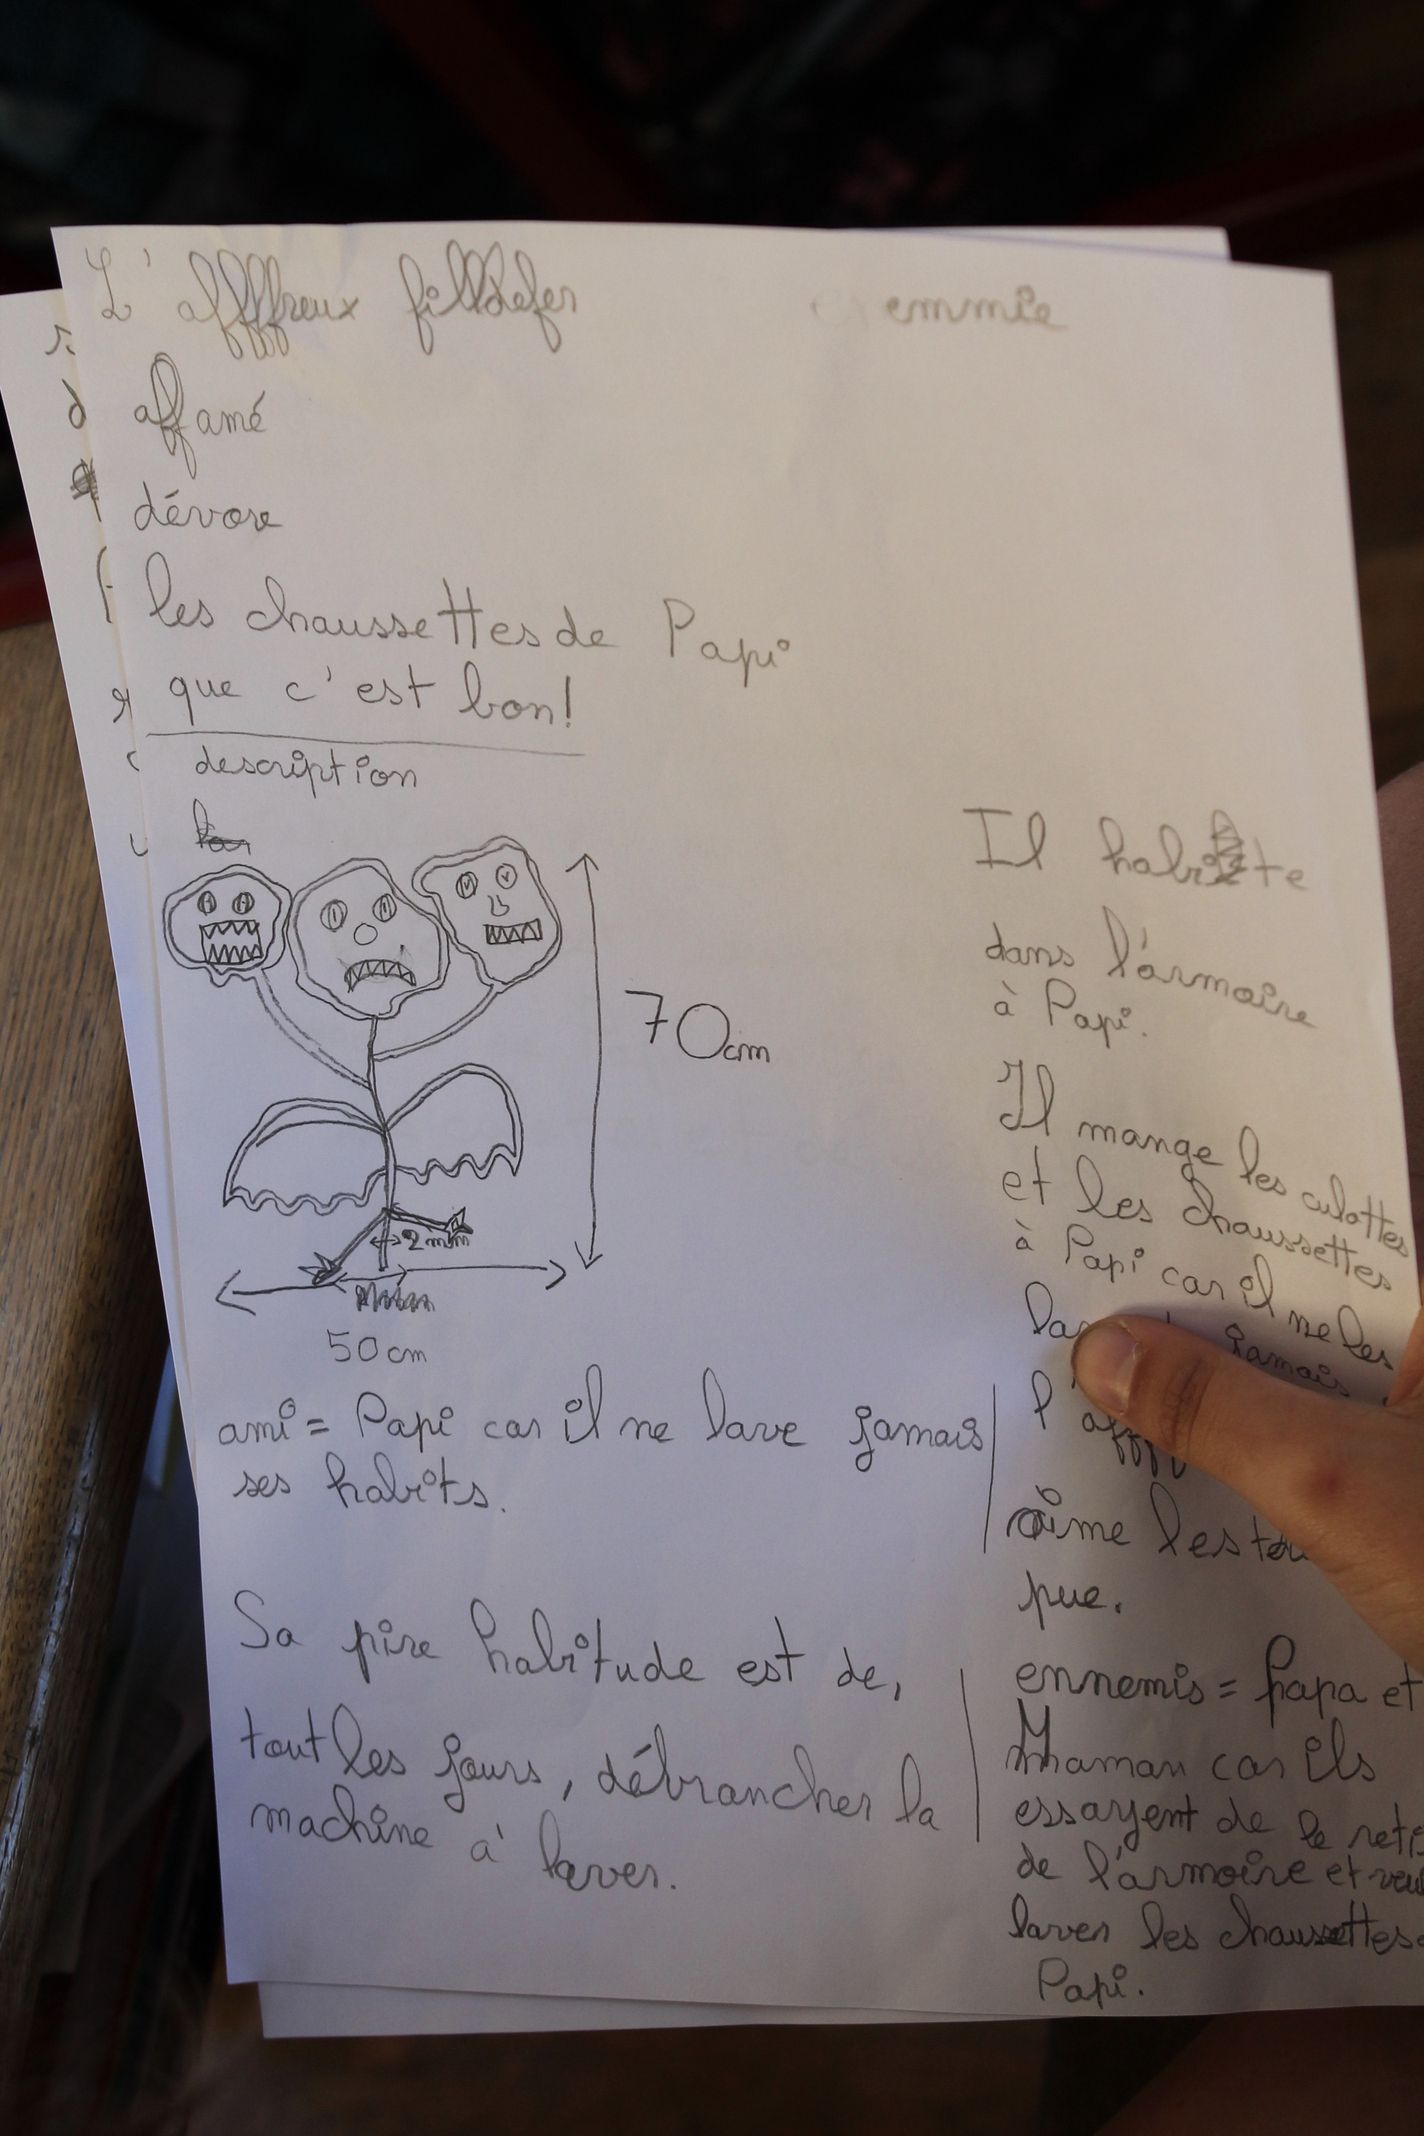 L'affffreux fillldefer
emmie
affamé
dévore
les chaussettes de Papi
que c'est bon!
description
70cm
2mm
50cm
ami = Papi car il ne lave jamais
ses habits.
Sa pire habitude est de,
tout les jours, débrancher la
machine à laver.
Il habite
dans l'armoire
à Papi.
Il mange les culottes
et les chaussettes
à Papi car il ne les
jamais
aime les
pue.
ennemis = papa et
Maman car ils
essayent de le
de l'armoire et
laver les chaussettes
Papi.